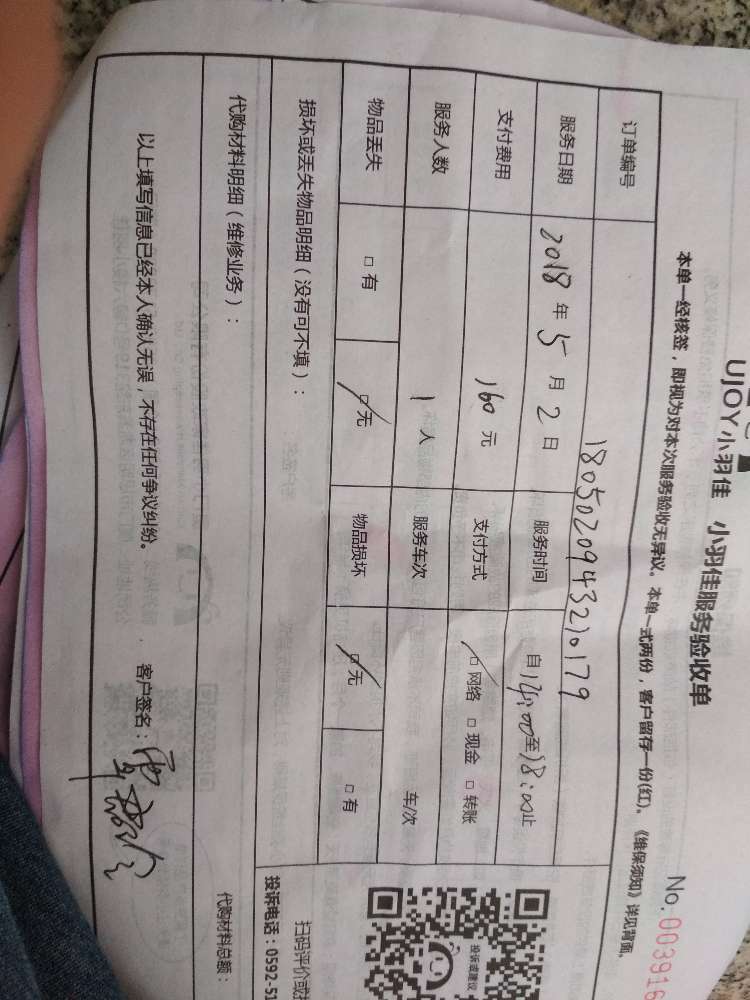 UJOY小羽佳 小羽佳服务验收单
No:003916
本单一经核签，即视为对本次服务验收无异议。本单一式两份，客户留存一份(红)。《维保须知》详见背面。
订单编号 1805020943210179
服务日期 2018年5月2日 服务时间 自14:00至18:00止
支付费用 160元 支付方式 □网络 □现金 □转账
服务人数 1人 服务车次 车/次
物品丢失 □有 □无 物品损坏 □无 □有
损坏或丢失物品明细（没有可不填）：
代购材料明细（维修业务）： 代购材料总额：
以上填写信息已经本人确认无误，不存在任何争议纠纷。 客户签名：
投诉或建议
扫码评价或
投诉电话：0592-51